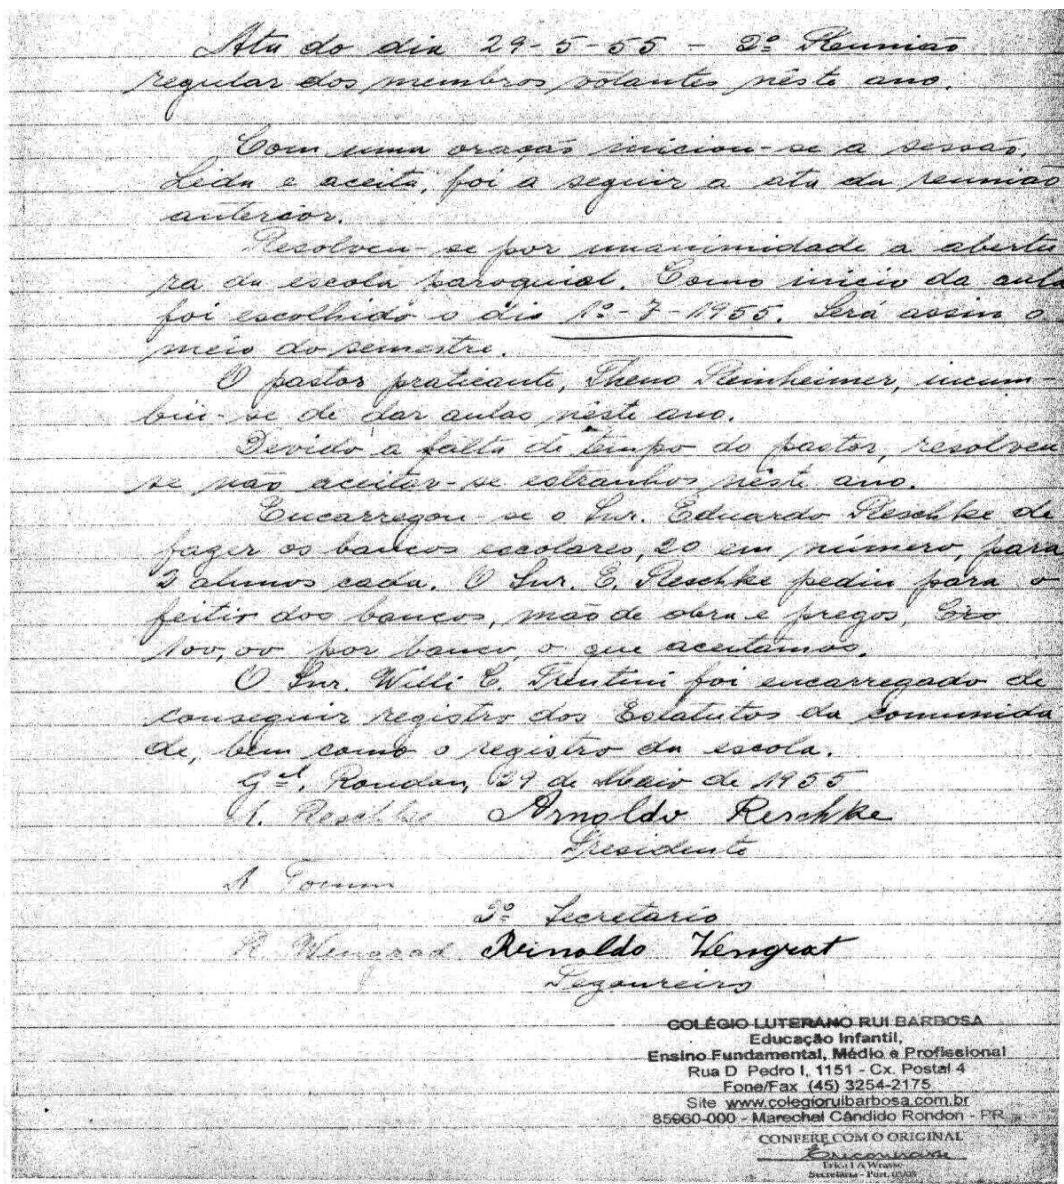 Ata do dia 29-5-55 - 2º Reunião
regular dos membros votantes nêste ano.
Com uma oração iniciou-se a sessão.
Lida e aceita, foi a seguir a ata da reunião
anterior.
Resolveu-se por unanimidade a abertu
ra da escola paroquial. Como inicio da aula
foi escolhido o dia 1º-7-1955. Será assim o
meio do semestre.
O pastor praticante, Theno Reinheimer, incum-
biu-se de dar aulas nêste ano.
Devido a falta de tempo do pastor, resolveu
se não aceitar-se estranhos nêste ano.
Encarregou-se o Snr. Eduardo Reschke de
fazer os bancos escolares, 20 em número, para
2 alunos cada. O Snr. E. Reschke pediu para o
feitio dos bancos, mão de obra e pregos, Cr$
100,00 por banco, o que aceitamos.
O Snr. Willi C. Trentini foi encarregado de
conseguir registro dos Estatutos da comunida
de, bem como o registro da escola.
Gal. Rondon, 29 de Maio de 1955
A. Reschke Arnoldo Reschke
Presidente
A
2º Secretario
R. Wengrad Reinoldo Wengrat
Tezoureiro
COLÉGIO LUTERANO RUI BARBOSA
Educação Infantil,
Ensino Fundamental, Médio e Profissional
Rua D Pedro I, 1151 - Cx. Postal 4
Fone/Fax (45) 3254-2175
Site www.colegioruibarbosa.com.br
85960-000 - Marechal Cândido Rondon - PR
CONFERE COM O ORIGINAL
Erica I A Wrasse
Secretária - Port.